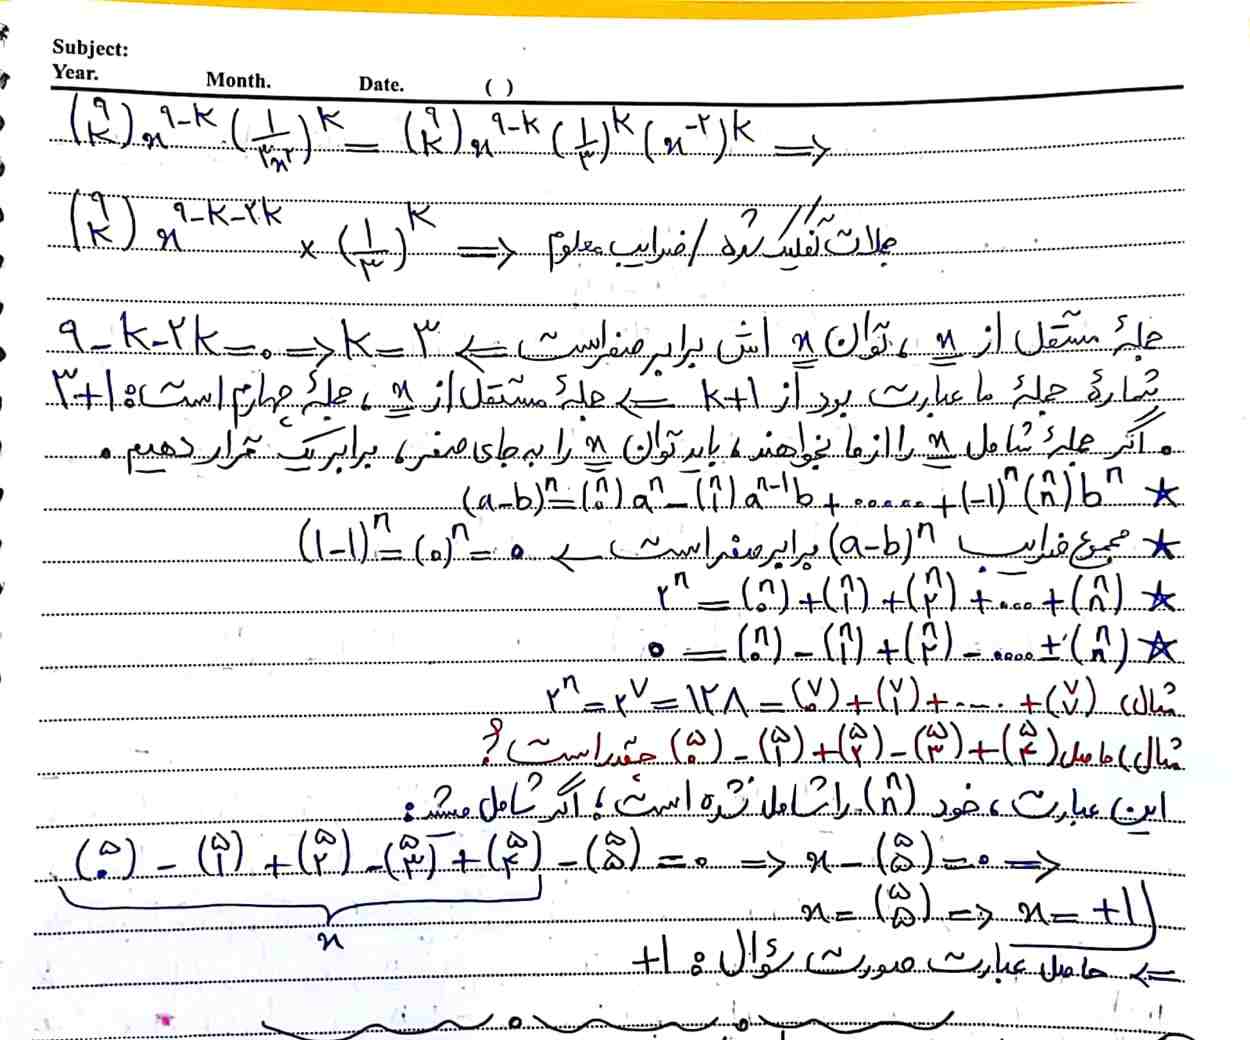 Subject:
Year. Month. Date. ( )
(۹ k) x^۹-k (۱/۳x^۲)^k = (۹ k) x^۹-k (۱/۳)^k (x^-۲)^k ⇒
(۹ k) x^۹-k-۲k × (۱/۳)^k ⇒ جملات تفکیک شده / ضرایب معلوم
جملهٔ مستقل از x، توان x اش برابر صفر است ⇐ ۹-k-۲k=۰ ⇒ k=۳
شمارهٔ جملهٔ ما عبارت بود از k+۱ ⇐ جملهٔ مستقل از x، جملهٔ چهارم است: ۳+۱
. اگر جملهٔ شامل x را از ما بخواهند، باید توان x را به جای صفر، برابر یک قرار دهیم.
★ (a-b)^n = (n ۰) a^n - (n ۱) a^n-۱ b + ...... + (-۱)^n (n n) b^n
★ مجموع ضرایب (a-b)^n برابر صفر است ← (۱-۱)^n = (۰)^n = ۰
★ ۲^n = (n ۰) + (n ۱) + (n ۲) + .... + (n n)
★ ۰ = (n ۰) - (n ۱) + (n ۲) - .... ± (n n)
مثال) ۲^n = ۲^۷ = ۱۲۸ = (۷ ۰) + (۷ ۱) + .... + (۷ ۷)
مثال) حاصل (۵ ۰) - (۵ ۱) + (۵ ۲) - (۵ ۳) + (۵ ۴) چقدر است؟
این عبارت، خود (n n) را شامل نشده است؛ اگر شامل میشد:
(۵ ۰) - (۵ ۱) + (۵ ۲) - (۵ ۳) + (۵ ۴) - (۵ ۵) = ۰ ⇒ x - (۵ ۵) = ۰ ⇒
x = (۵ ۵) ⇒ x = +۱
x
⇐ حاصل عبارت صورت سؤال: +۱